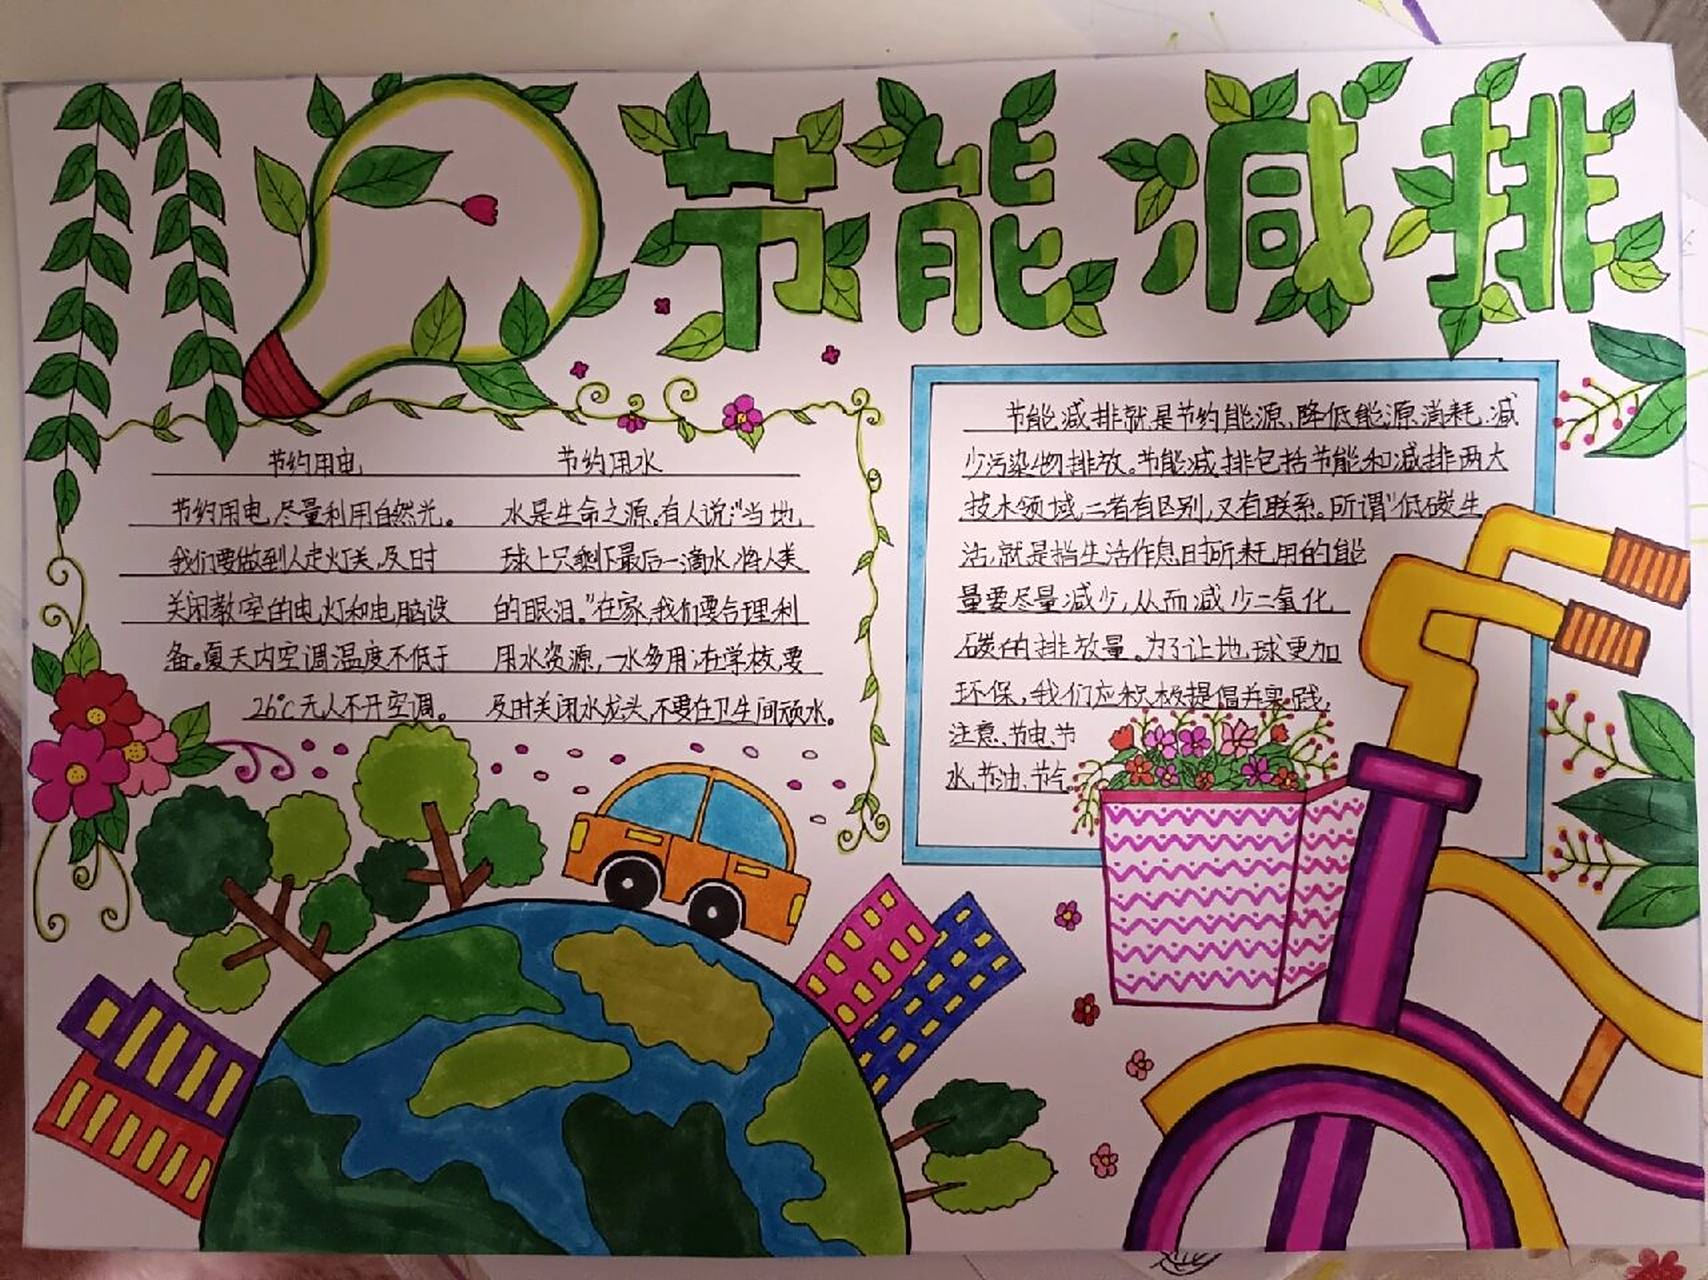 节能减排
节约用电
节约用电,尽量利用自然光。
我们要做到人走灯关,及时
关闭教室的电灯和电脑设
备。夏天内空调温度不低于
26℃无人不开空调。
节约用水
水是生命之源。有人说:"当地
球上只剩下最后一滴水,将人类
的眼泪。"在家,我们要合理利
用水资源,一水多用;在学校,要
及时关闭水龙头,不要在卫生间顽水。
节能减排就是节约能源、降低能源消耗、减
少污染物排放。节能减排包括节能和减排两大
技术领域,二者有区别,又有联系。所谓"低碳生
活,就是指生活作息时所耗用的能
量要尽量减少,从而减少二氧化
碳的排放量。为了让地球更加
环保,我们应积极提倡并实践,
注意、节电、节
水、节油、节气。